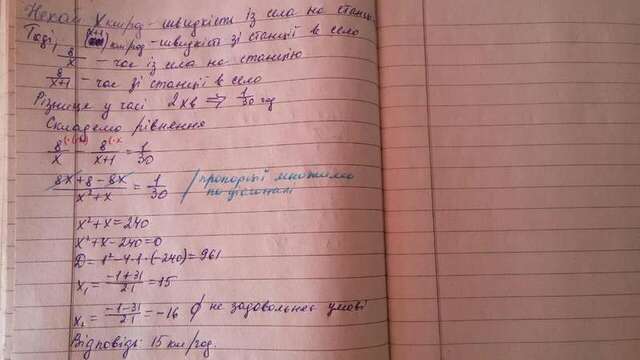 Нехай x км/год - швидкість із села на станц
Тоді, (x+1) км/год - швидкість зі станції в село
8/x - час із села на станцію
8/x+1 - час зі станції в село
Різниця у часі 2хв ⇒ 1/30 год
Складемо рівняння
8/x - 8/x+1 = 1/30
8x+8-8x/x²+x = 1/30 / пропорції множимо по діагоналі
x²+x=240
x²+x-240=0
D=1²-4·1·(-240)=961
x₁ = -1+31/2·1 = 15
x₂ = -1-31/2·1 = -16 ∅ не задовольняє умові
Відповідь: 15 км/год.